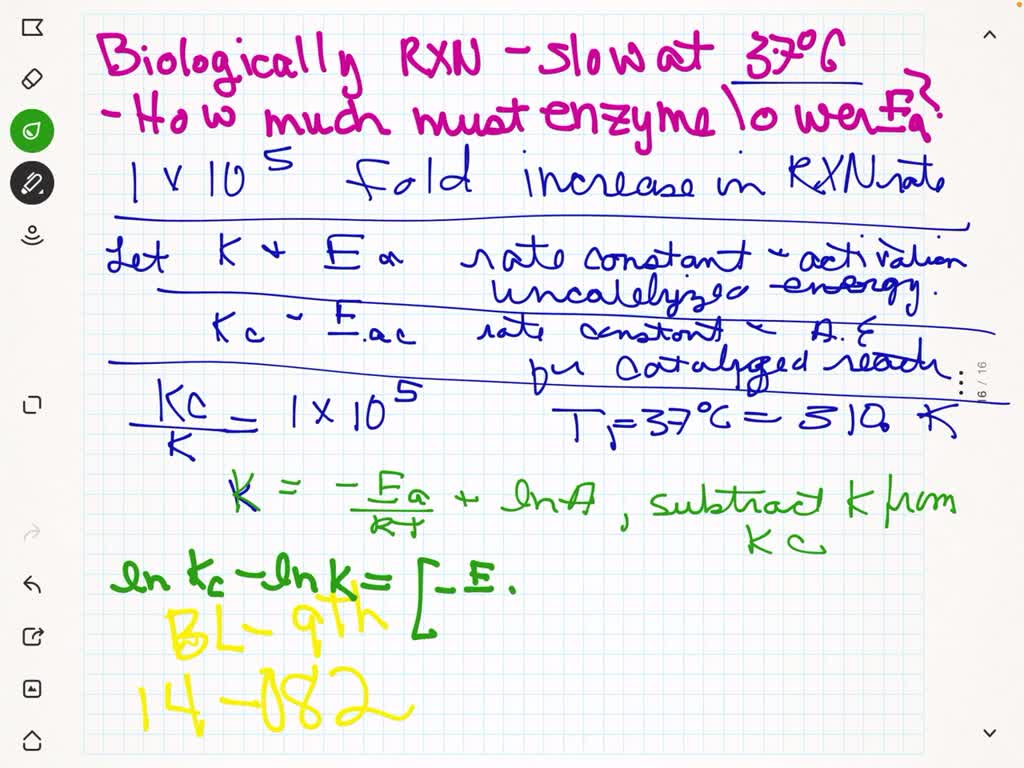 Biologically RXN - slow at 37°C
- How much must enzyme lower Ea?
1 x 10^5 fold increase in RXN rate
Let K + Ea rate constant ~ activation
uncatalyzed energy.
Kc ~ Eac rate constant ~ A.E
for catalyzed reach
Kc/K = 1 x 10^5 T1 = 37°C = 310. K
K = -Ea/RT + lnA, subtract K from
Kc
ln Kc - ln K = [-E.
BL-9th
14-082
16 / 16